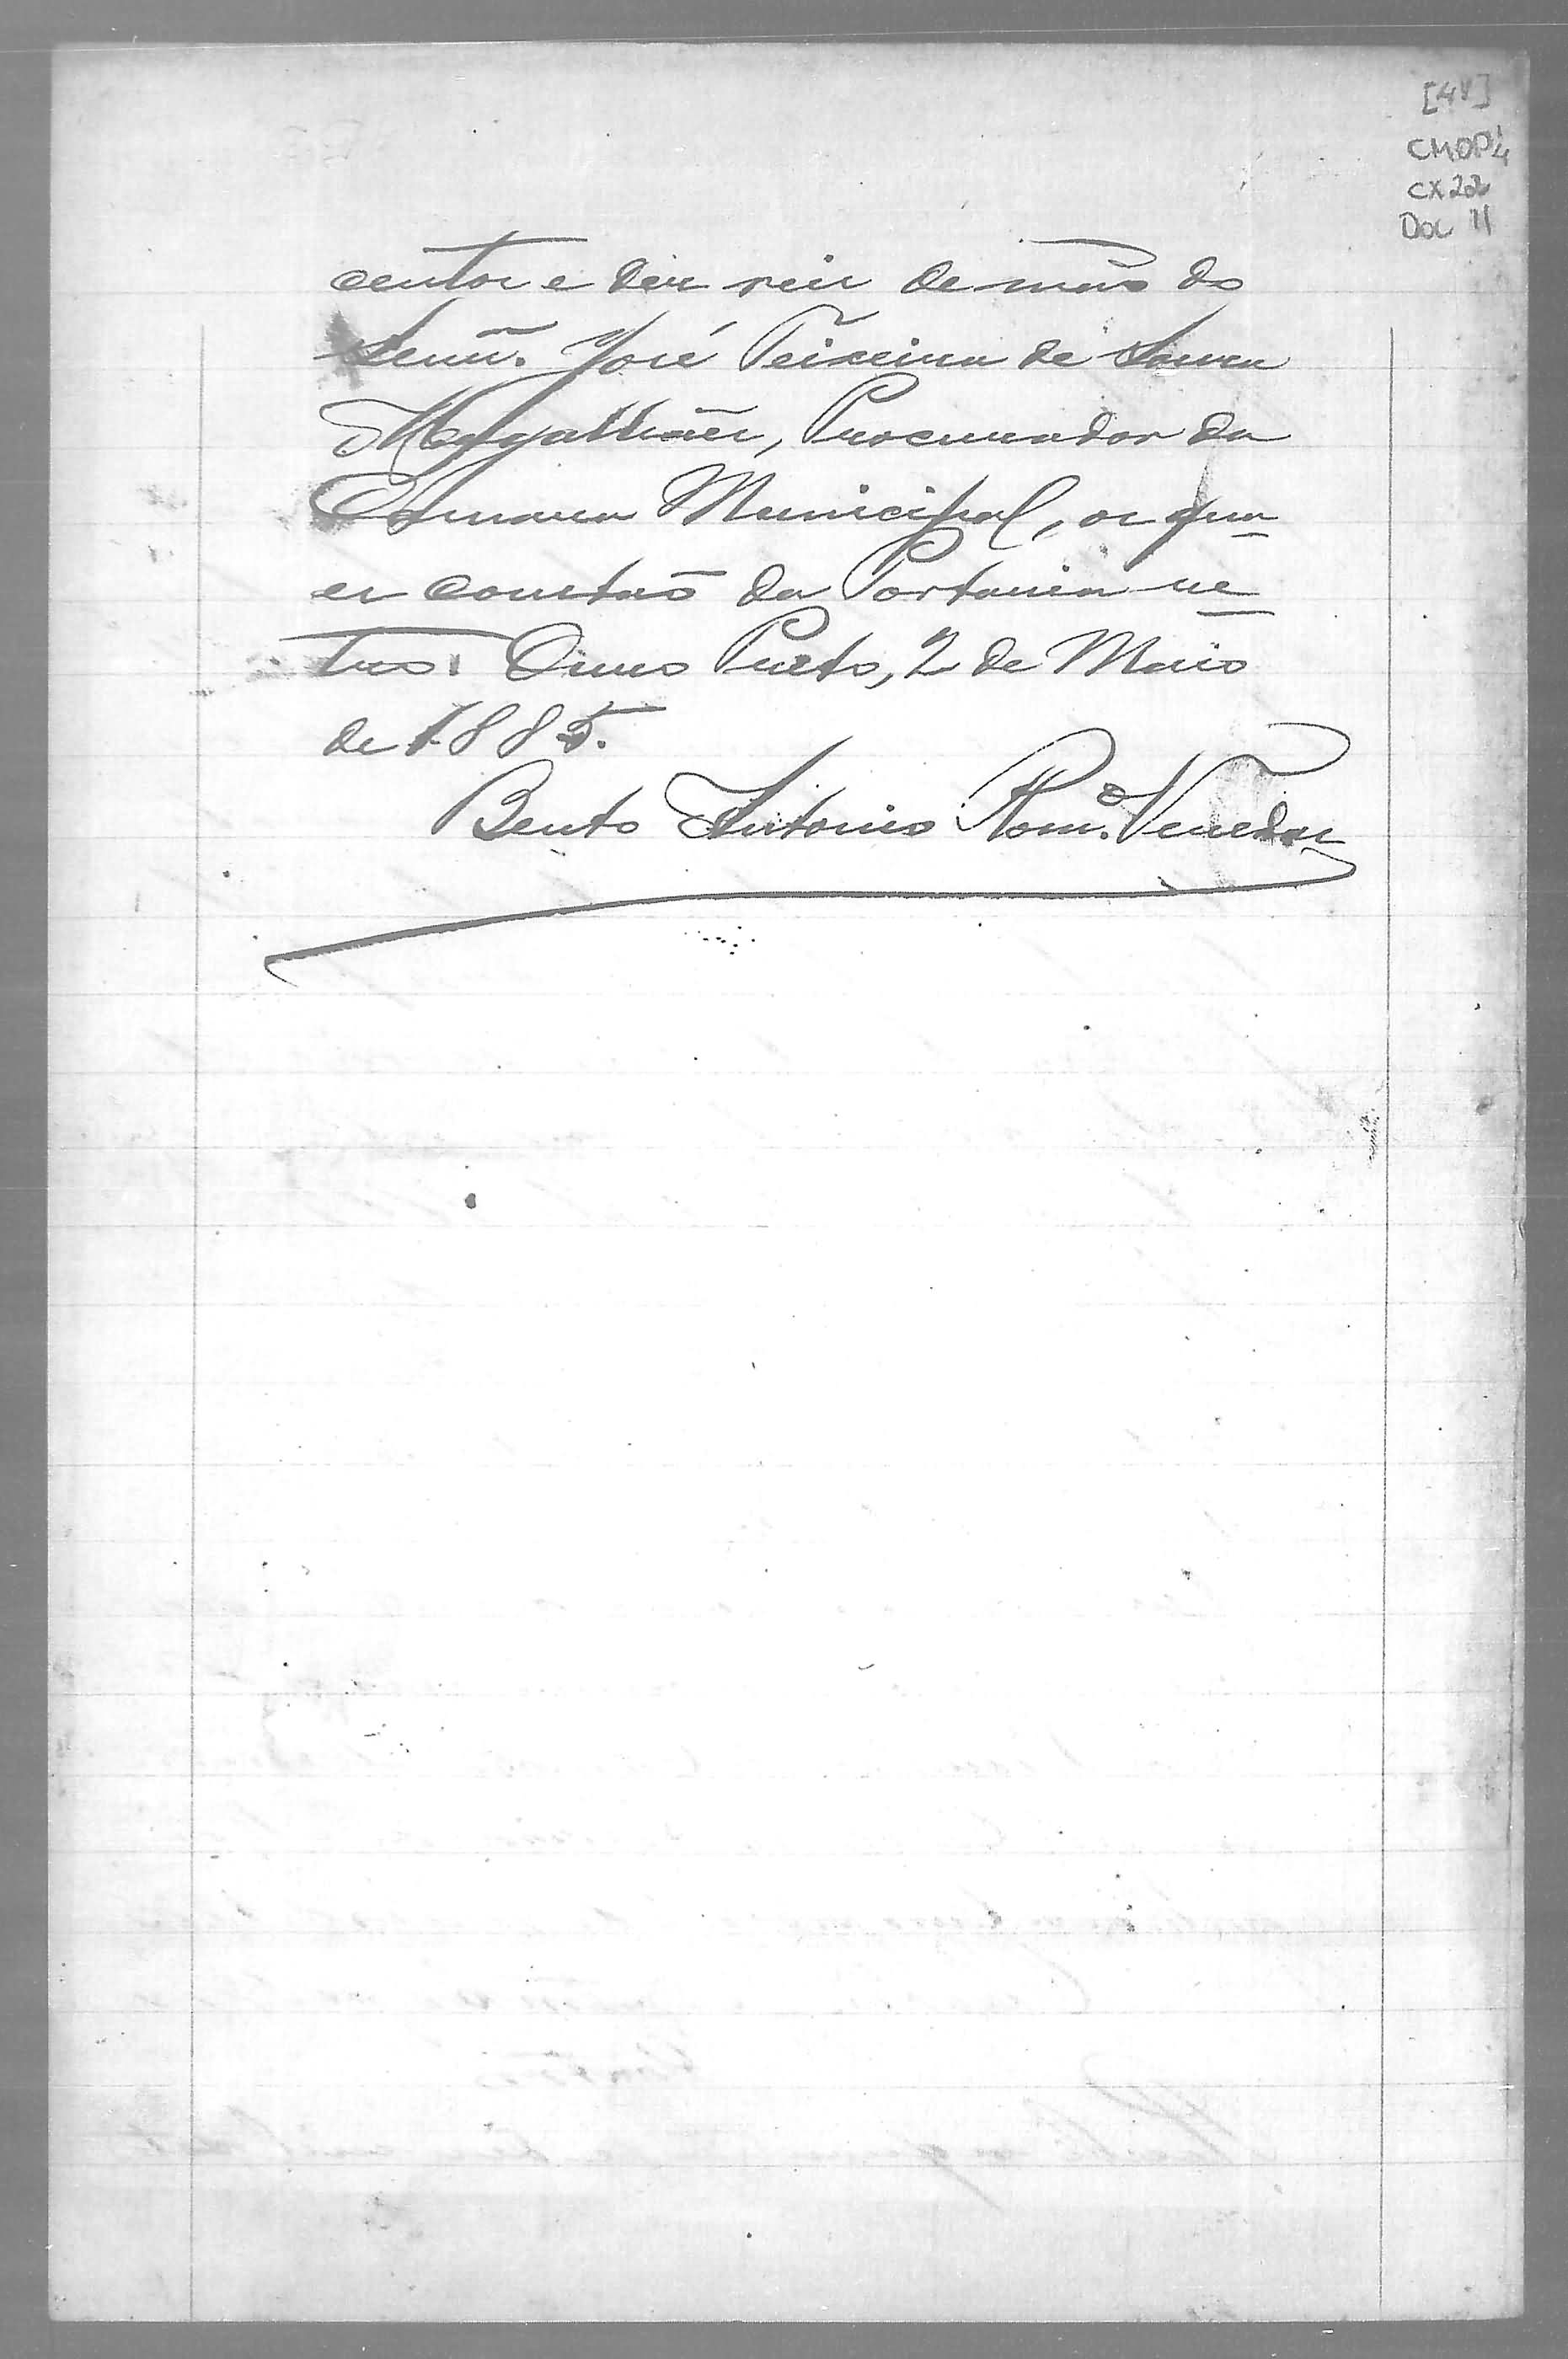 [4V]
CMOP
CX 202
Doc 11
centos e dez reis de mão do
Senr. José Teixeira de Souza
Magalhães, Procurador da
Camara Municipal, os qua-
es constão da Portaria re-
tro. Ouro Preto, 2 de Maio
de 1885.
Bento Antonio Rom.º Venedas